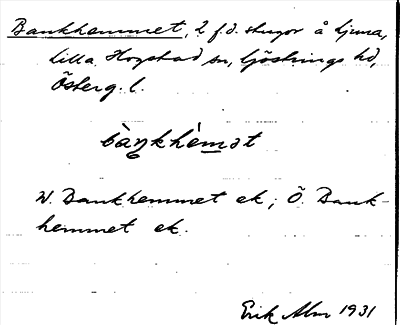 Bankhemmet, 2 f.d. stugor å Ljuna,
Lilla Hogstad sn, Göstrings hd,
Österg. l.
bàŋkhèmət
W. Bankhemmet ek; Ö. Bank-
hemmet ek.
Erik Alm 1931